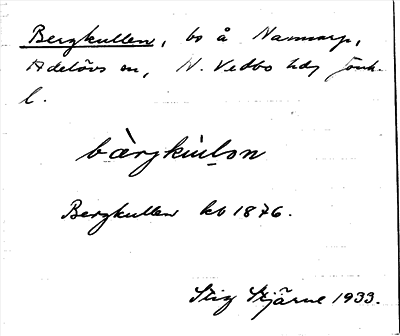 Bergkullen, bs å Nannarp,
Adelövs sn, N. Vedbo hd, Jönk.
l.
bàrgkùlon
Bergkullen kb 1876.
Stig Stjärne 1933.